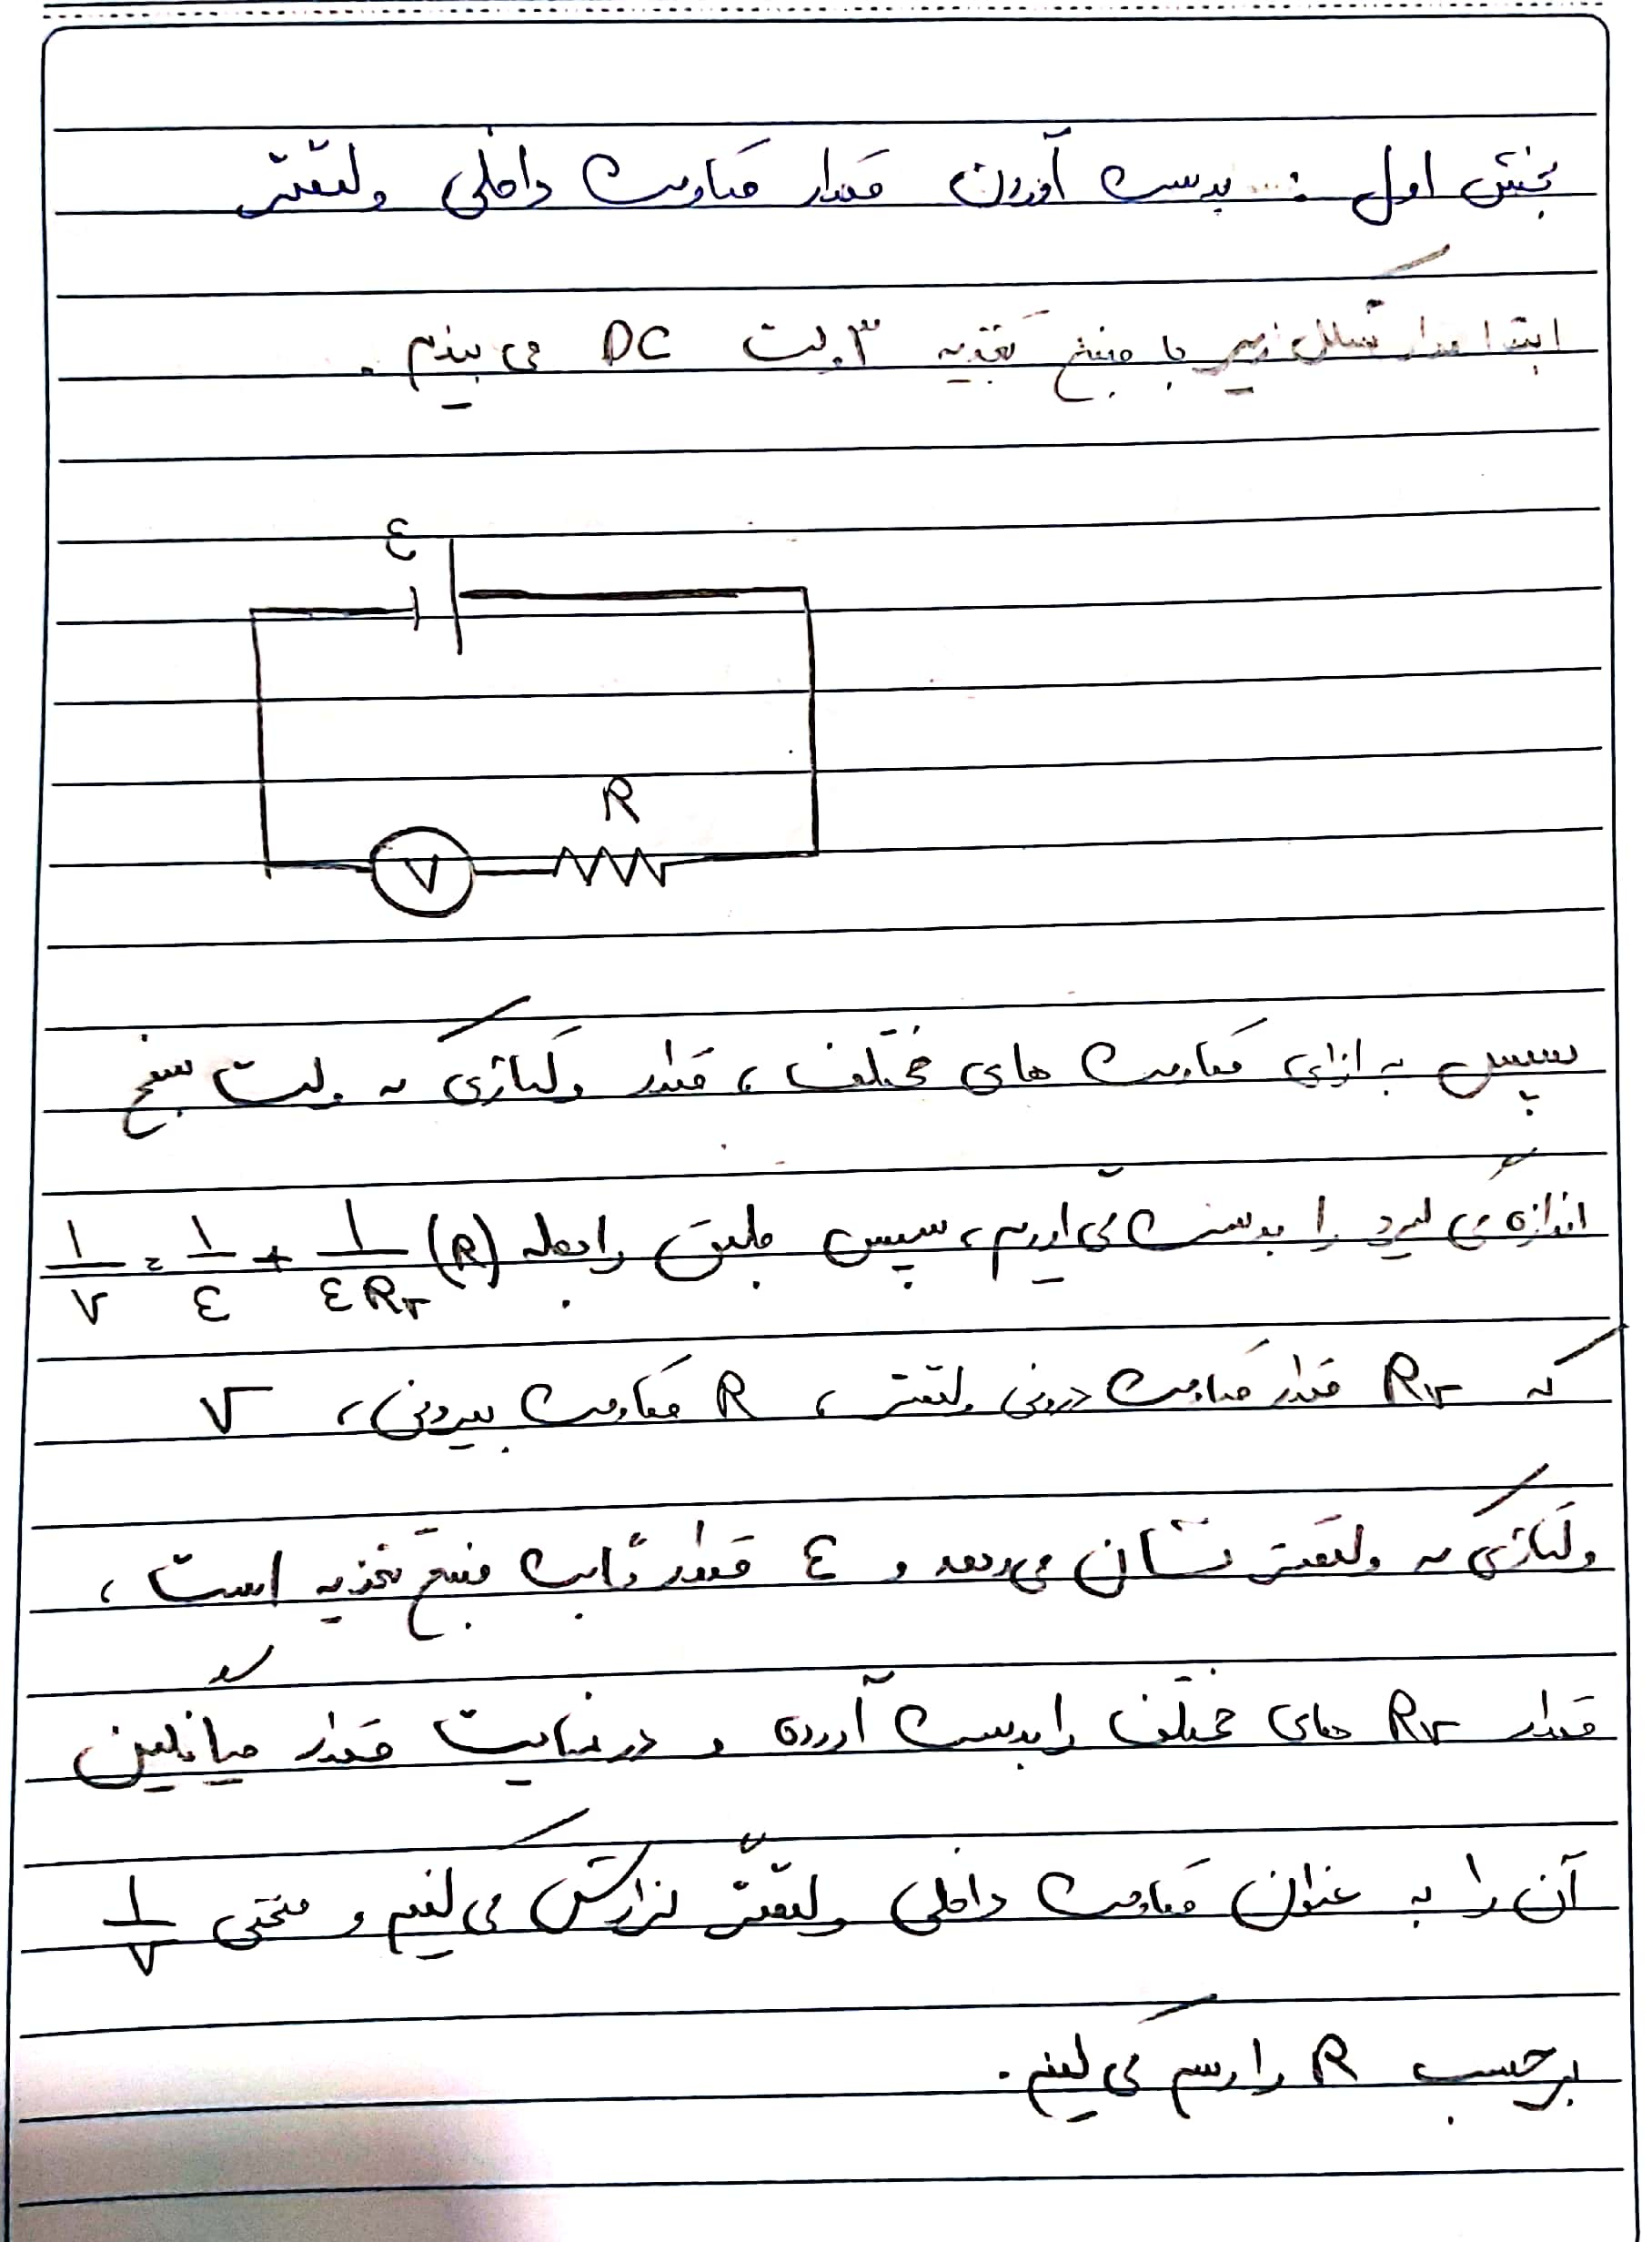 بخش اول : بدست آوردن مقدار مقاومت داخلی ولتمتر
ابتدا مدار شکل زیر با منبع تغذیه ۳ ولت DC می بندیم .
ε
R
V
سپس به ازای مقاومت های مختلف ، مقدار ولتاژی که ولت سنج
اندازه می گیرد را بدست می آوریم ، سپس طبق رابطه 1/V = 1/ε + 1/εRv (R)
که Rv مقدار مقاومت درونی ولتمتر ، R مقاومت بیرونی ، V
ولتاژی که ولتمتر نشان می دهد و ε مقدار ثابت منبع تغذیه است ،
مقدار Rv های مختلف را بدست آورده و در نهایت مقدار میانگین
آن را به عنوان مقاومت داخلی ولتمتر گزارش می کنیم و منحنی 1/V
برحسب R را رسم می کنیم .